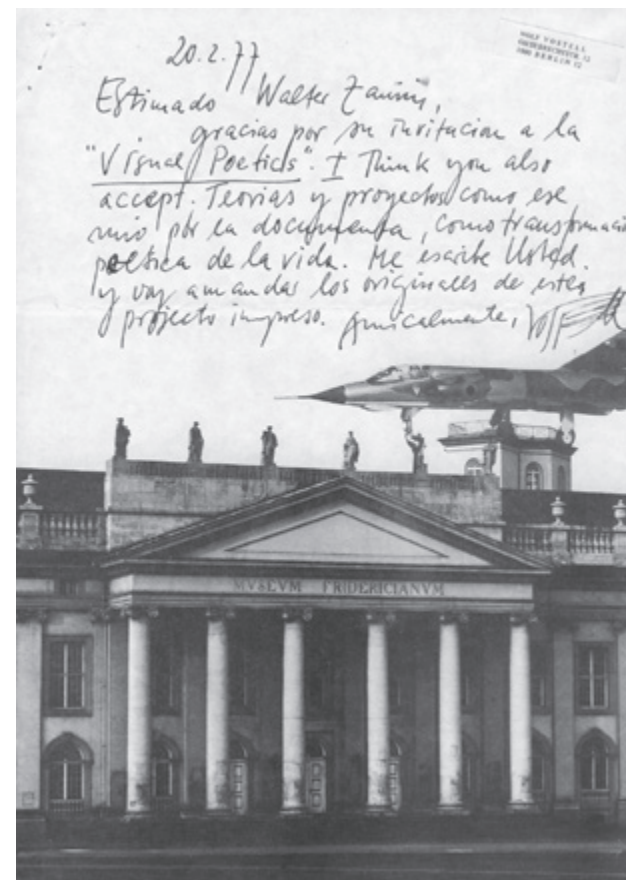 20.2.77
WOLF VOSTELL
1000 BERLIN 12
Estimado Walter Zanini,
gracias por su invitacion a la
"Visual Poetics". I Think you also
accept. Teorias y proyectos como ese
mio por la documenta, como transformacion
poetica de la vida. Me escribe Usted.
y voy a mandar los originales de este
projecto impreso. Amicalmente, Vostell
MVSEVM FRIDERICIANVM